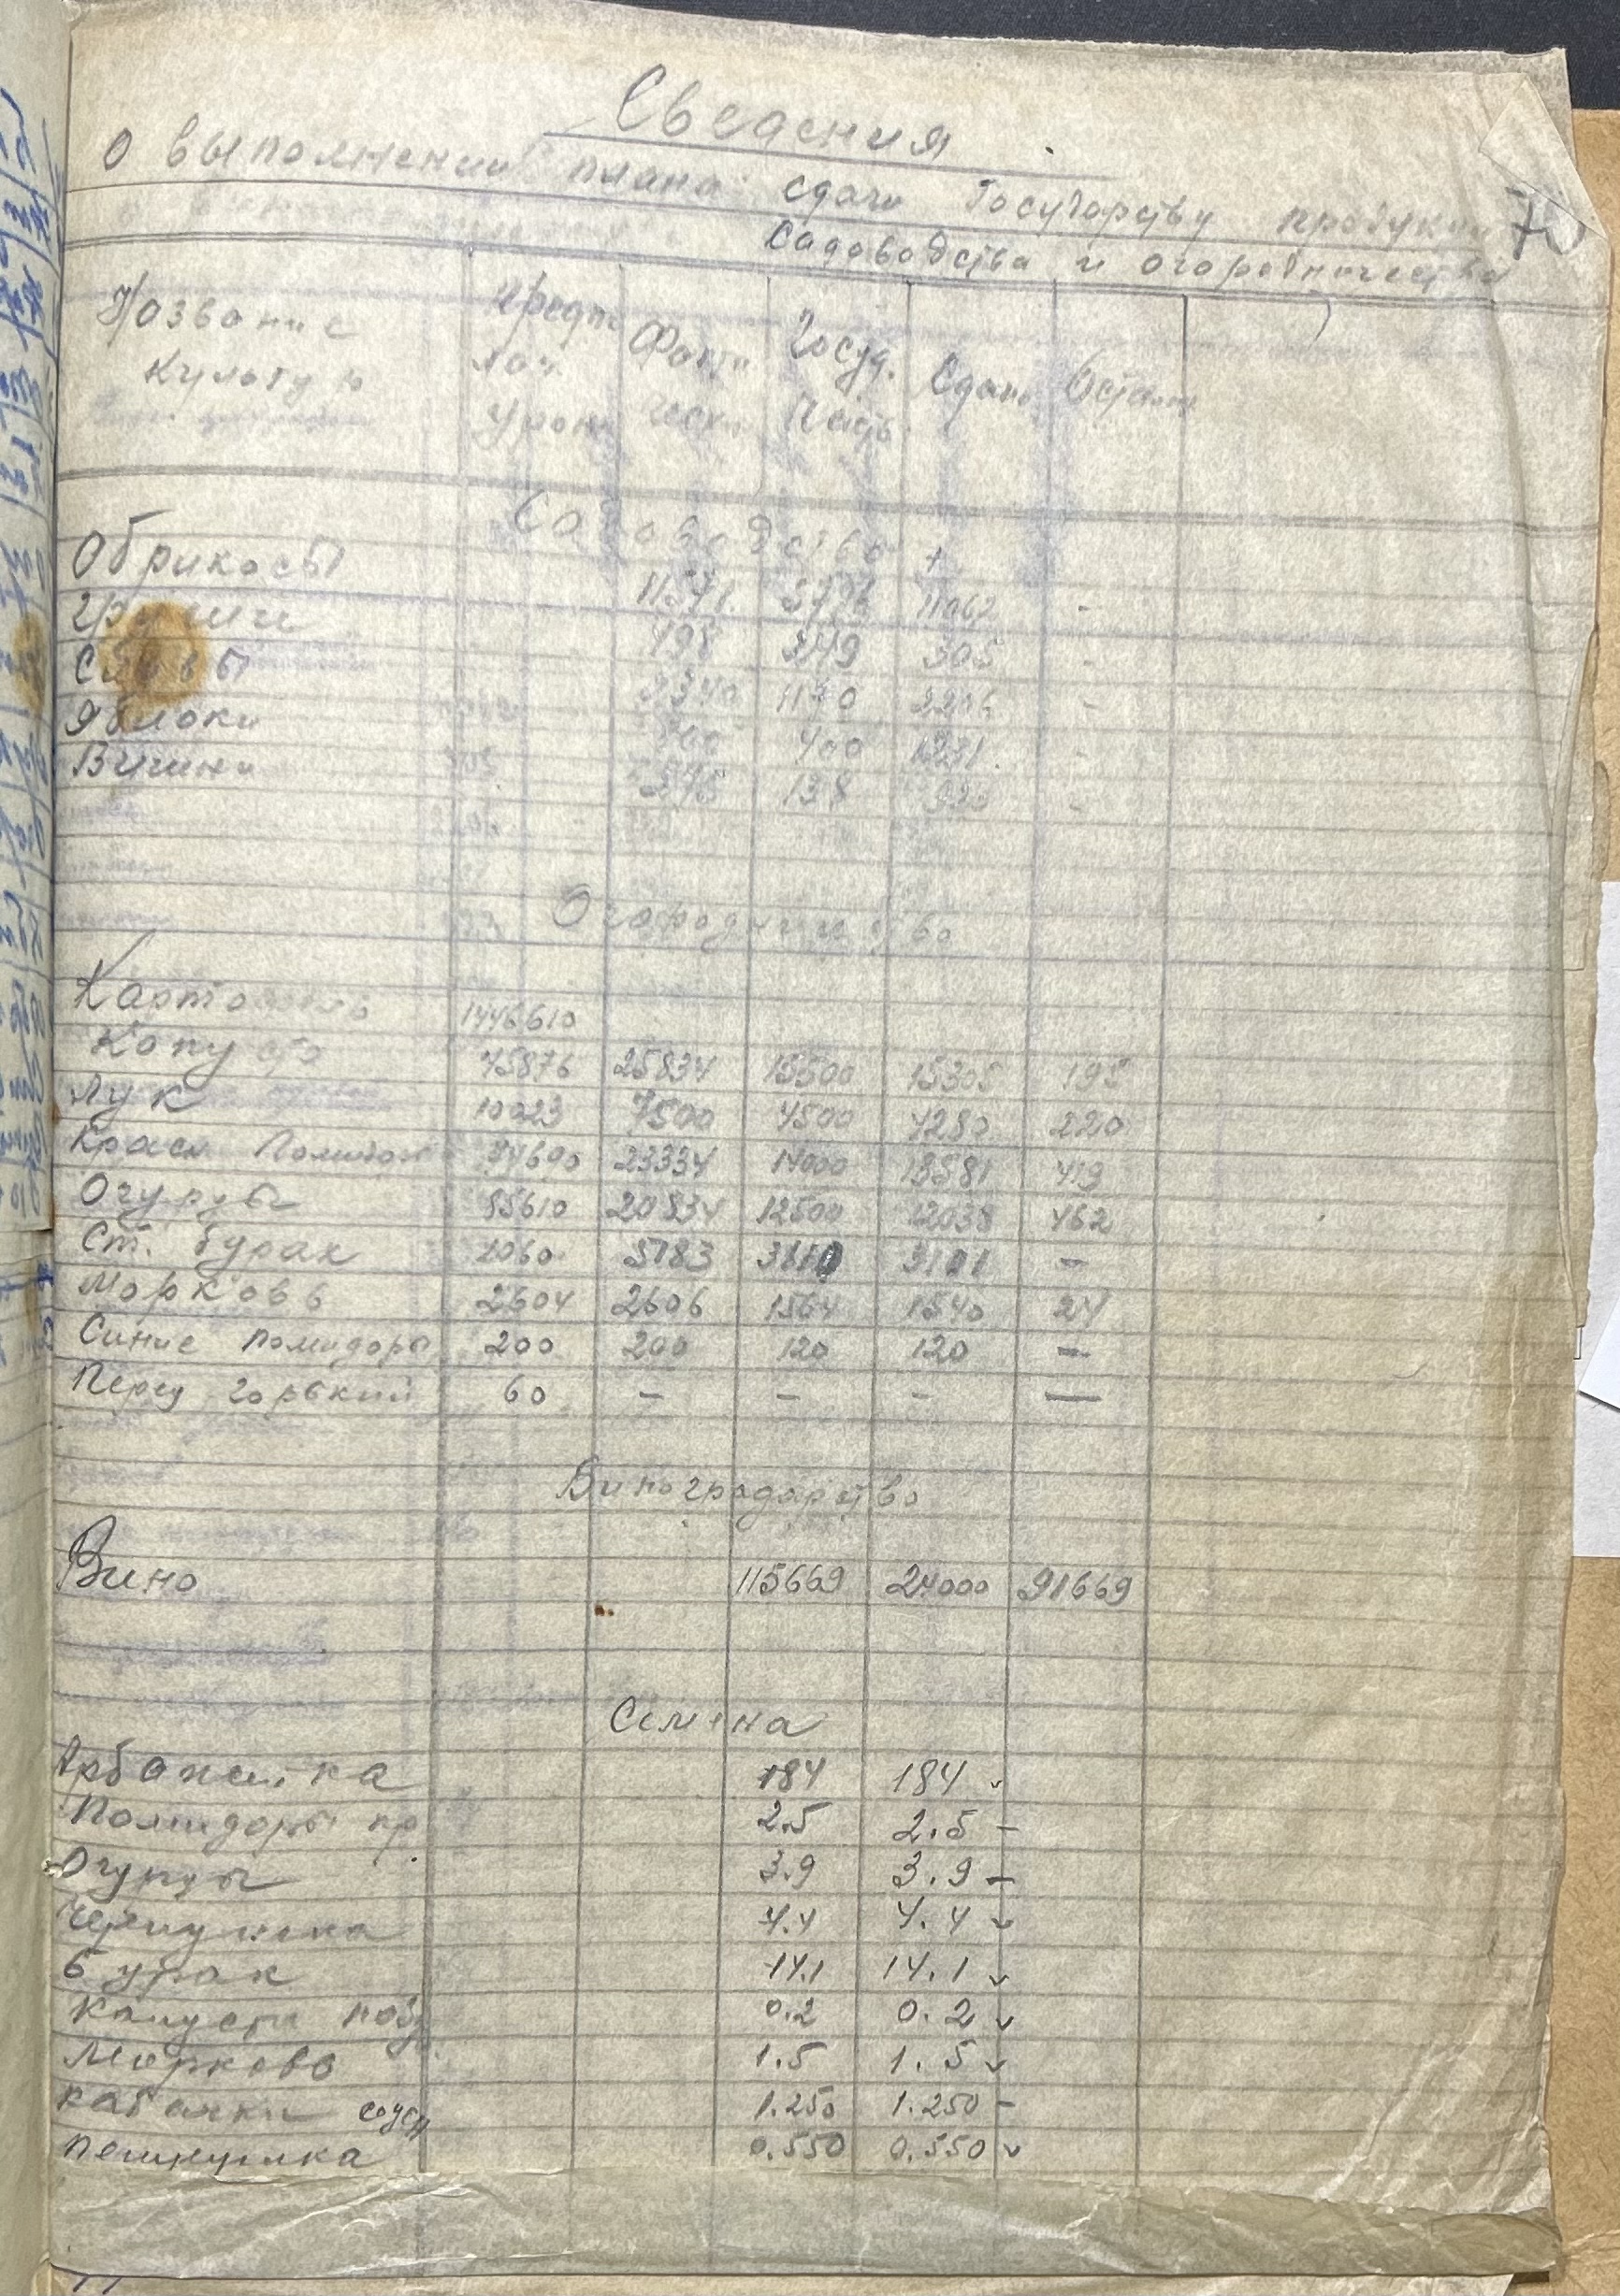 Сведения
о выполнении плана сдачи Государству продукции
70
Садоводства и огородничества
Название культур Предпо лож. урож. Факти чески Госуд. часть Сдано Остат.
Садоводство
Обрикосы 11571 5786 11062 -
Груши 498 349 305 -
Сливы 2340 1170 2206 -
Яблоки 800 400 1231 -
Вишни 276 138 -
Огородничество
Картофель 1446610
Капуста 45876 25834 15500 15305 195
Лук 10023 7500 4500 4280 220
Красн Помидор 23334 14000 13581 419
Огурцы 85610 20834 12500 12038 462
Ст. бурак 1060 5183 3110 3101 —
Морковь 2604 2606 1564 1540 24
Синие помидоры 200 200 120 120 —
Перец горький 60 - - - —
Виноградарство
Вино 115669 24000 91669
Семена
184 184
Помидоры кр 2.5 2.5 -
Огурцы 3.9 3.9 -
Чернушка 4.4 4.4
Бурак 14.1 14.1
Капуста позд 0.2 0.2
Морковь 1.5 1.5
Кабачки 1.250 1.250 -
0.550 0.550